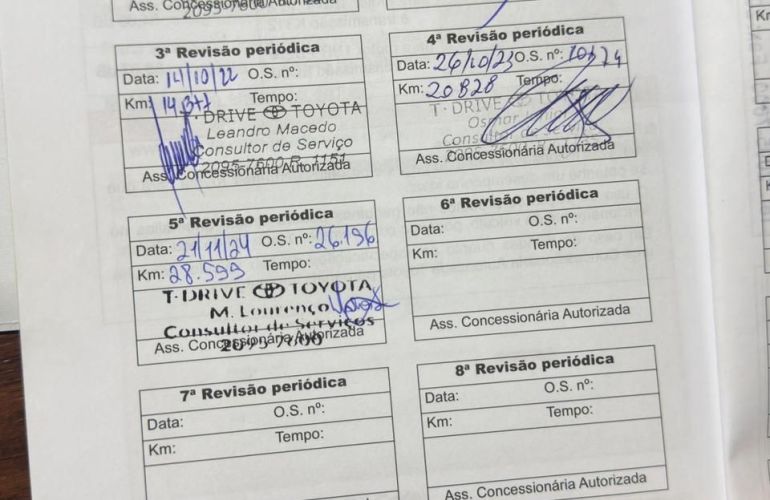 Ass. Concessionária Autorizada
2095-7600
3ª Revisão periódica
Data: 14/10/22 O.S. nº:
Km: 14.377 Tempo:
T-DRIVE TOYOTA
Leandro Macedo
Consultor de Serviço
2095-7600 R. 1151
Ass. Concessionária Autorizada
4ª Revisão periódica
Data: 26/10/23 O.S. nº:
Km: 20828 Tempo:
T-DRIVE
Osmar
Consultor
Ass. Concessionária Autorizada
5ª Revisão periódica
Data: 21/11/24 O.S. nº: 26.196
Km: 28.599 Tempo:
T-DRIVE TOYOTA
M. Lourenço
Consultor de Serviços
2095-7600
Ass. Concessionária Autorizada
6ª Revisão periódica
Data: O.S. nº:
Km: Tempo:
Ass. Concessionária Autorizada
7ª Revisão periódica
Data: O.S. nº:
Km: Tempo:
8ª Revisão periódica
Data: O.S. nº:
Km: Tempo:
Ass. Concessionária Autorizada